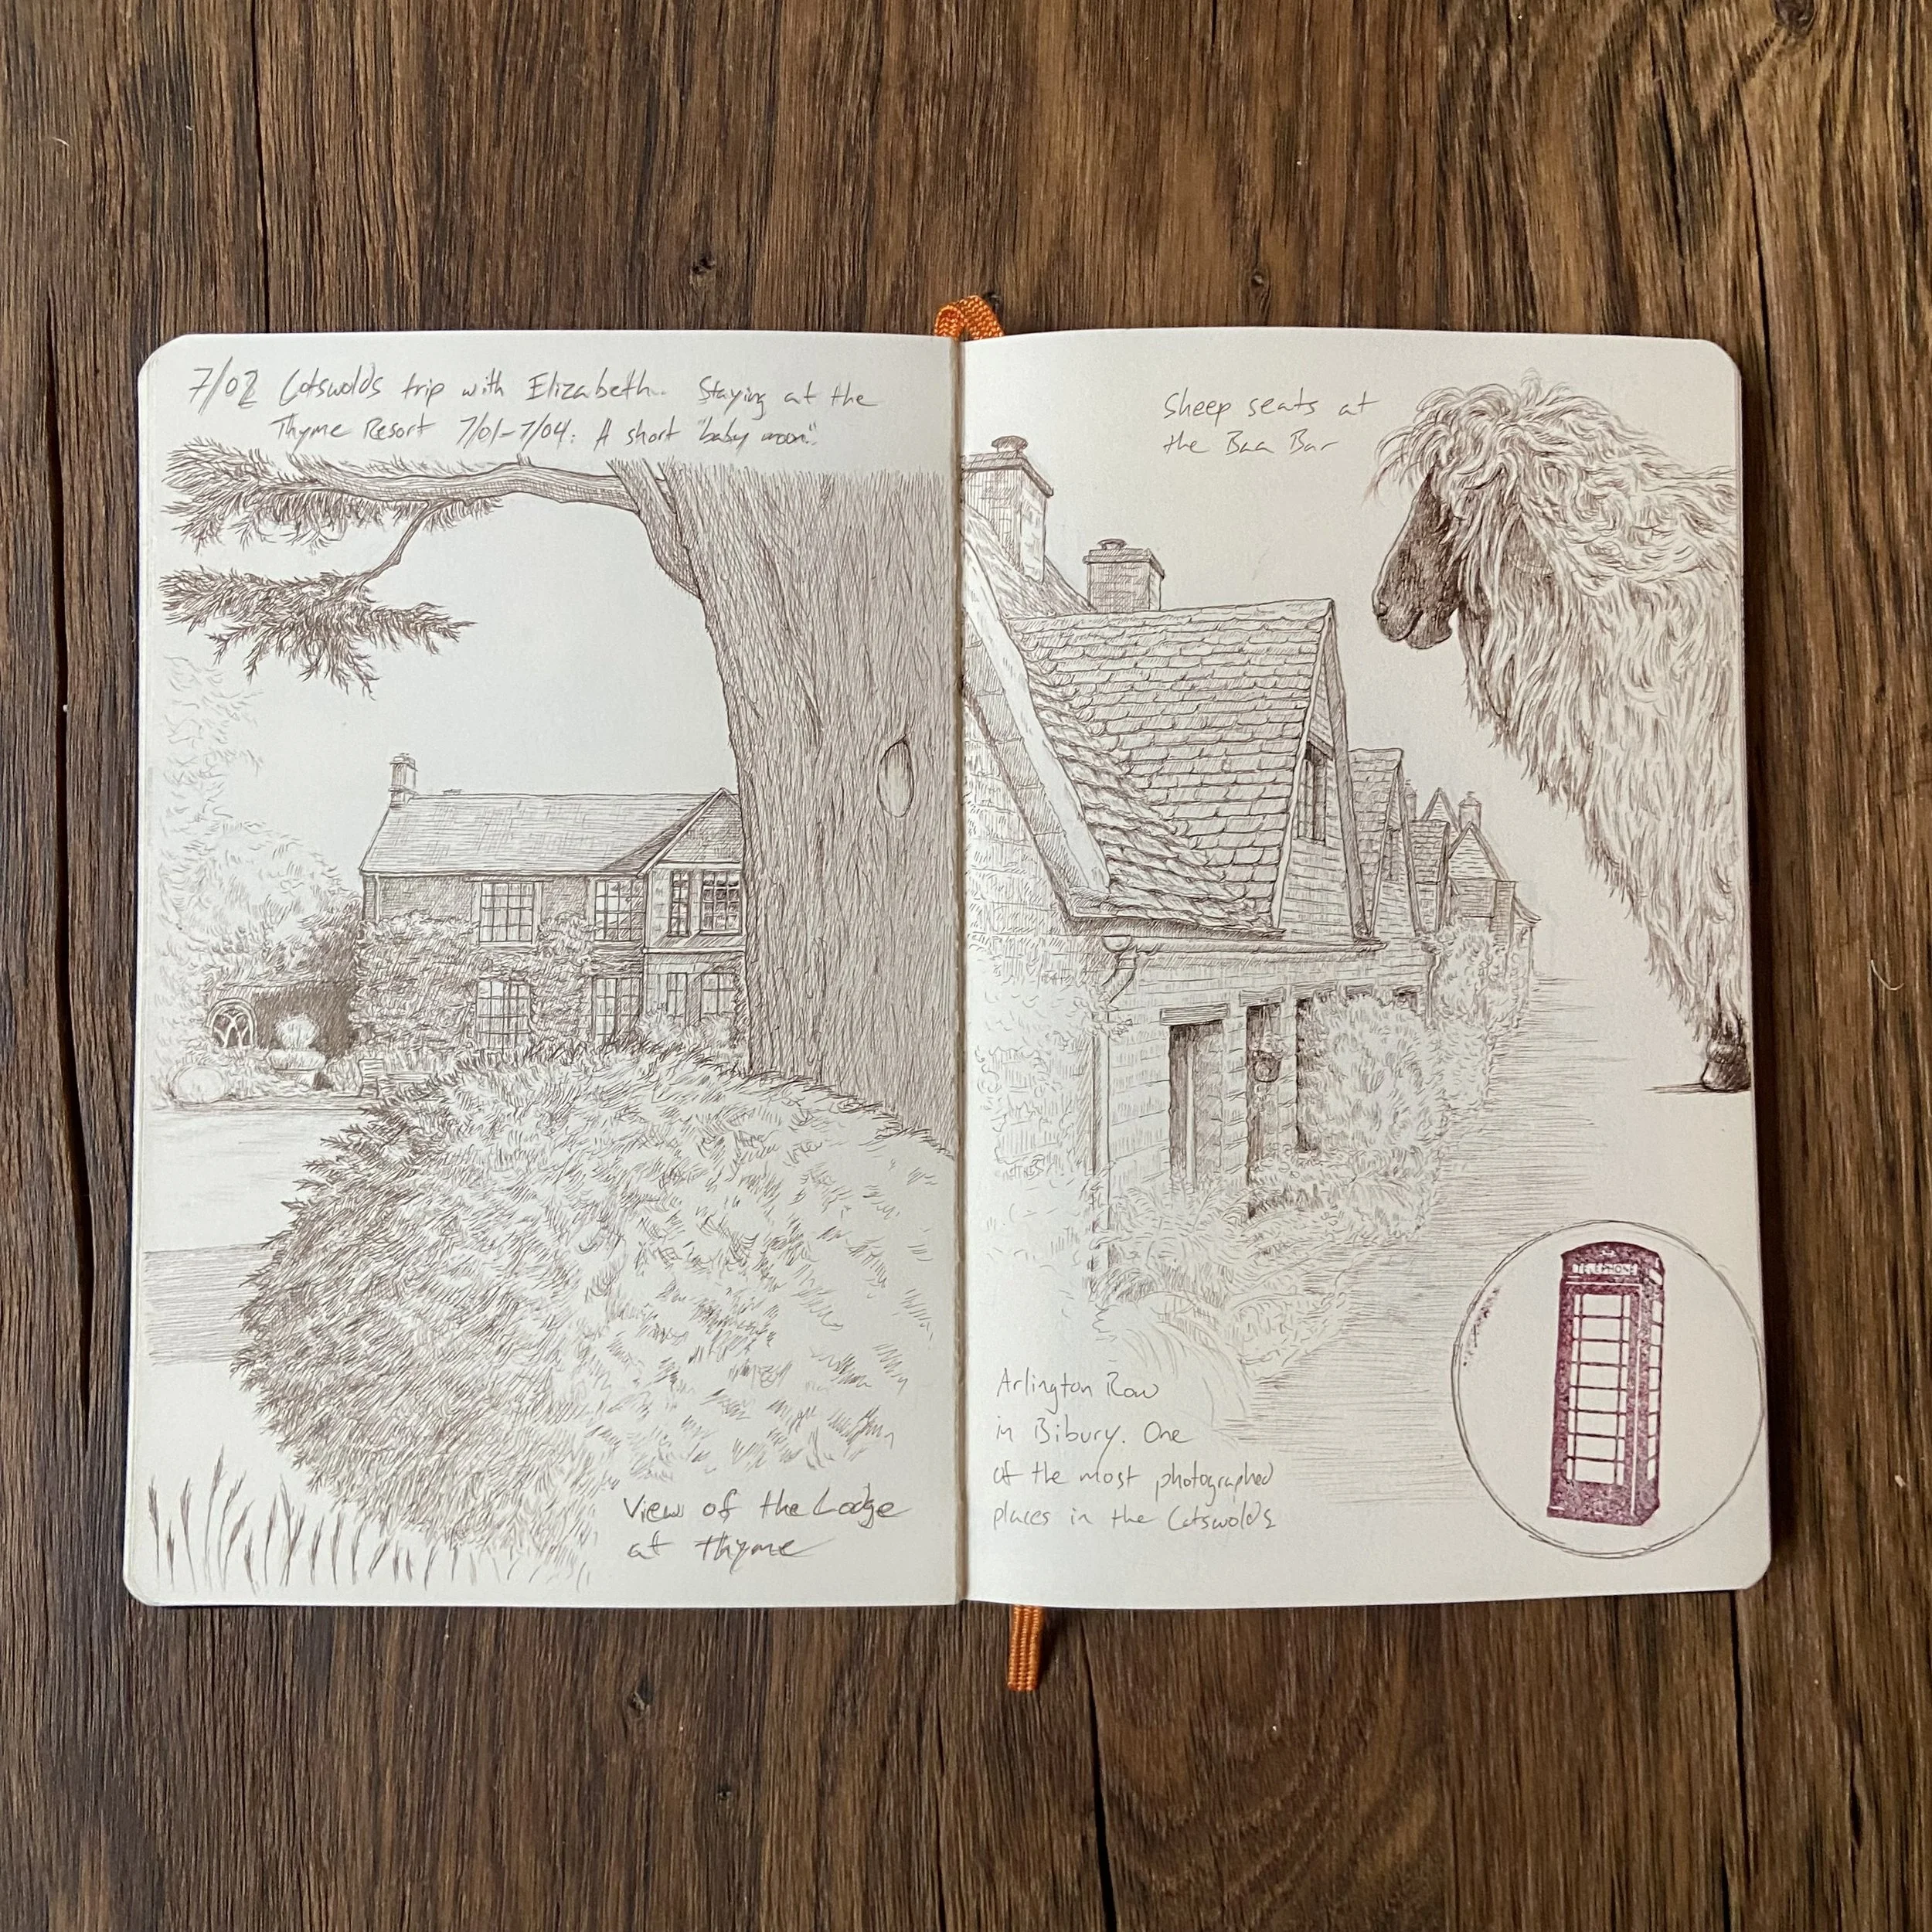 7/02 Cotswolds trip with Elizabeth. Staying at the
Thyme Resort 7/01-7/04: A short "baby moon".
View of the Lodge
at Thyme
Sheep seats at
the Baa Bar
Arlington Row
in Bibury. One
of the most photographed
places in the Cotswolds
TELEPHONE